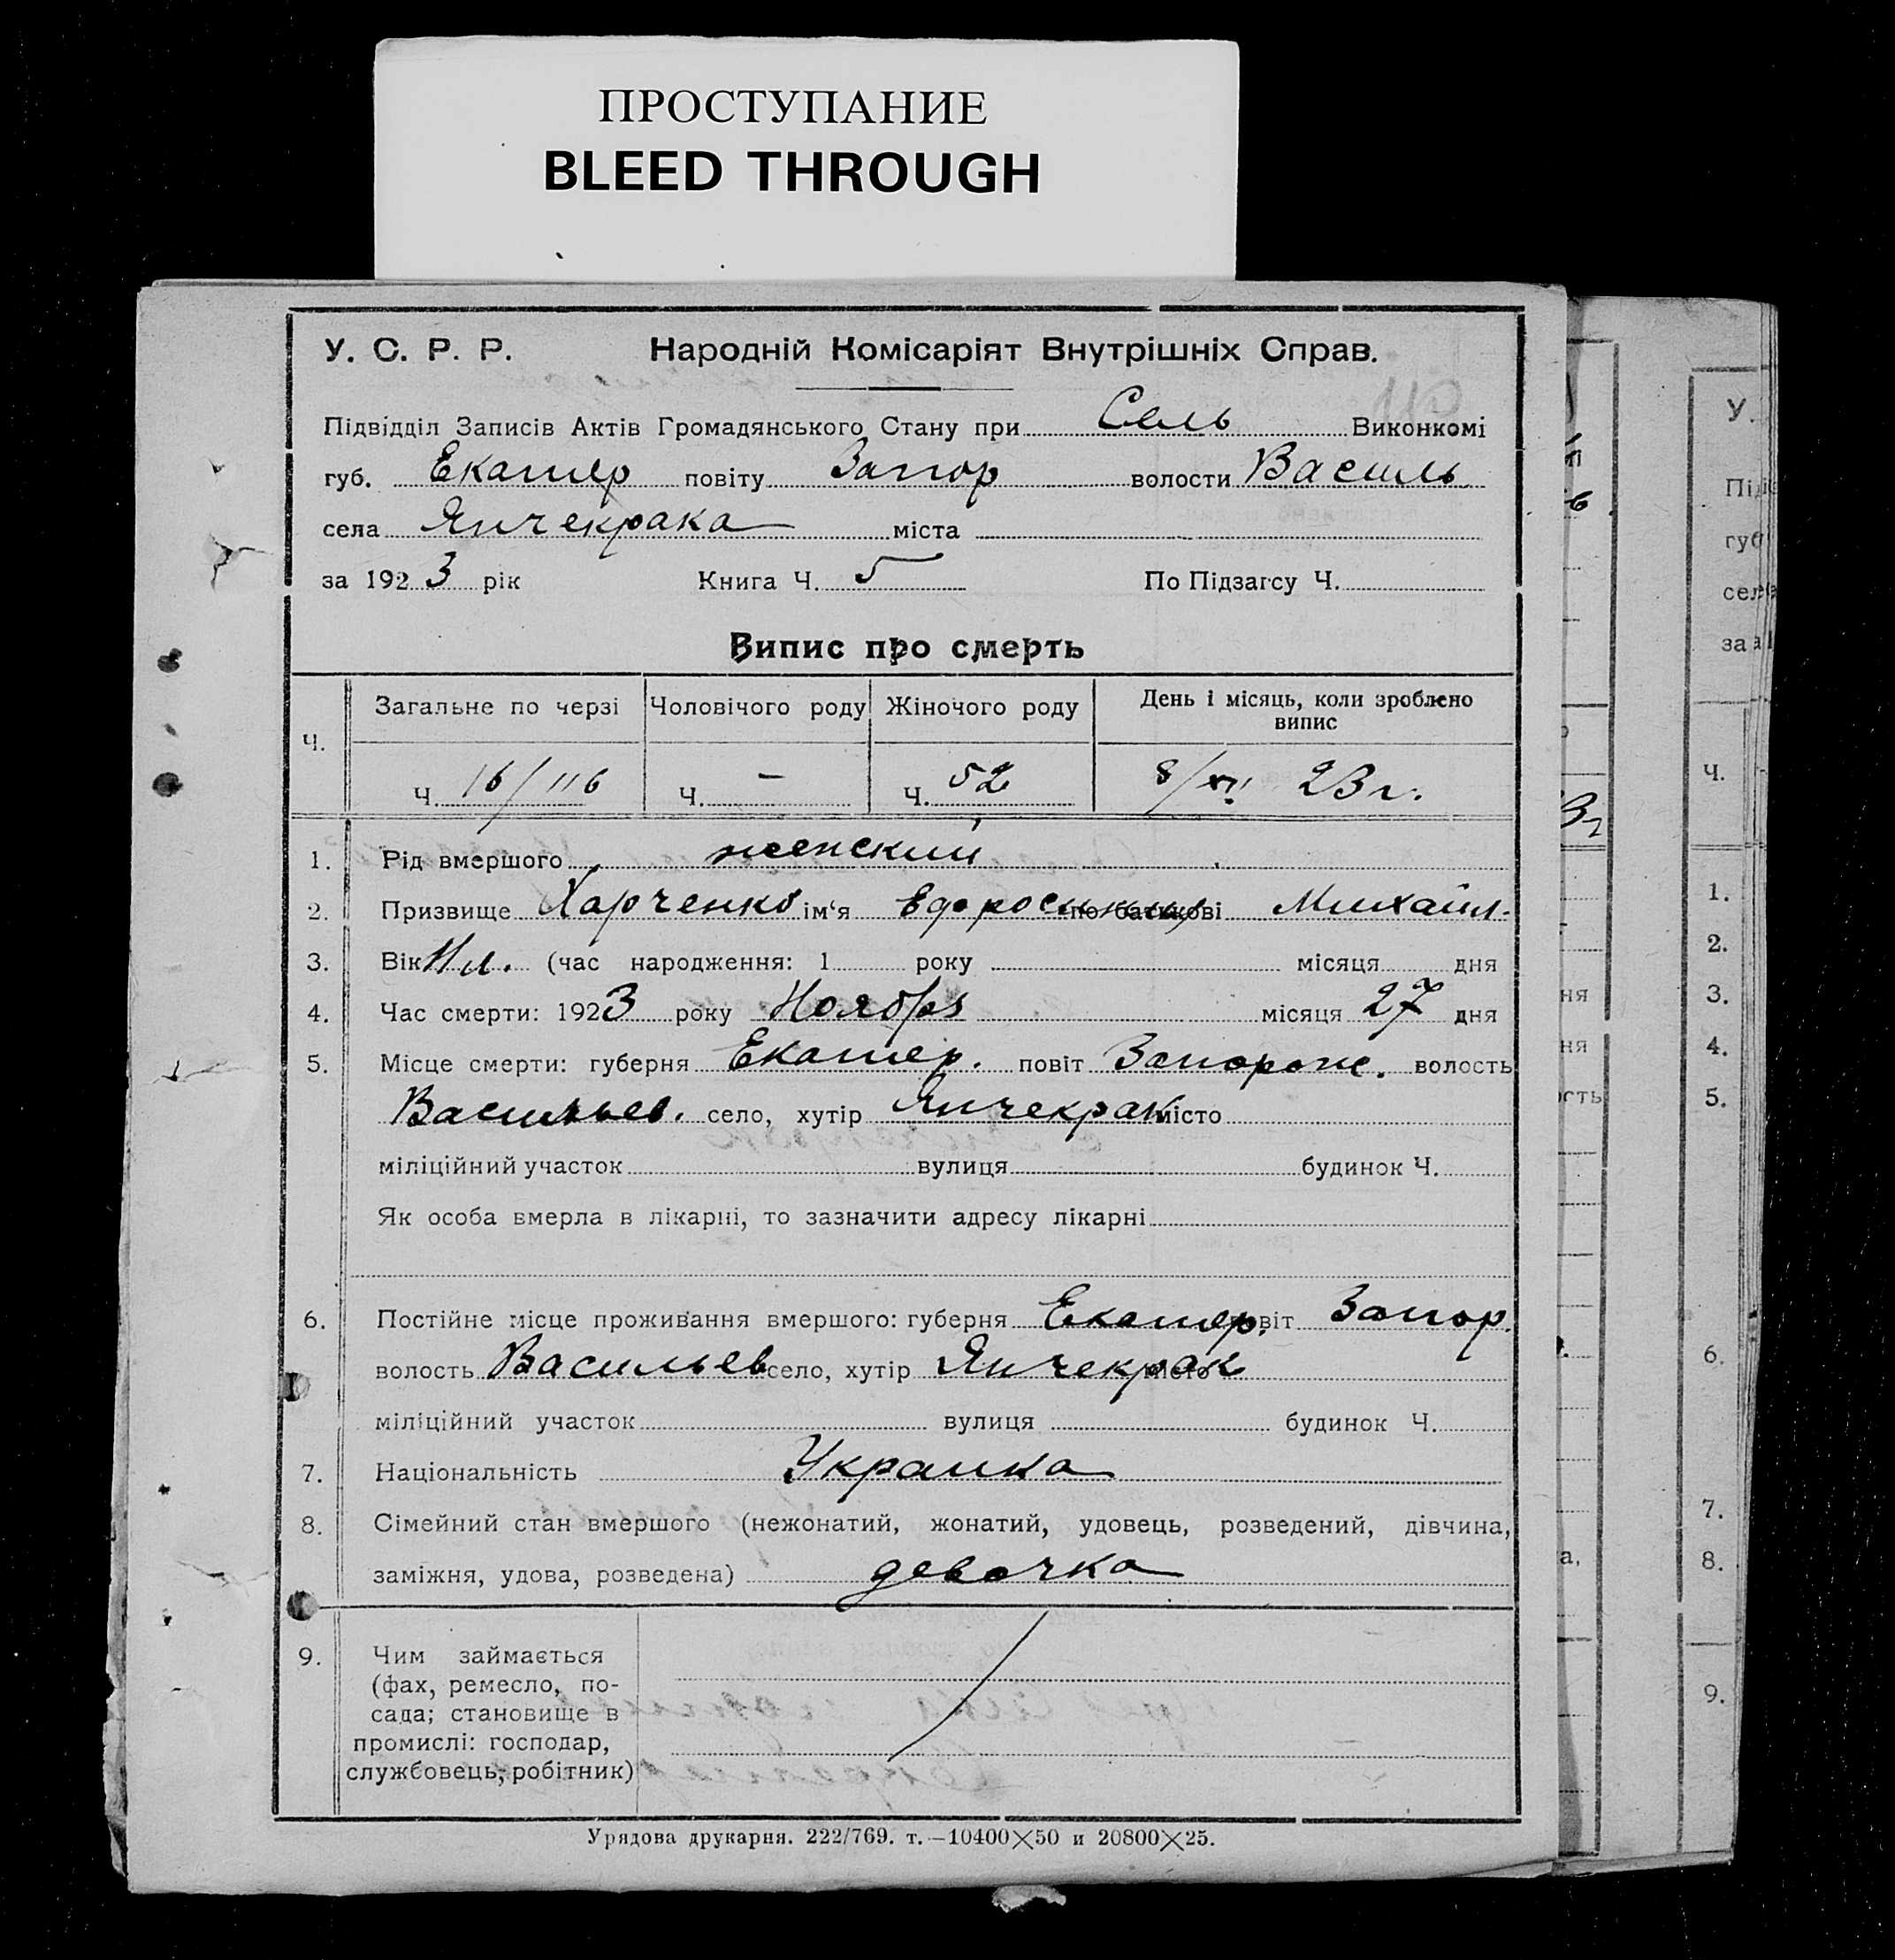 ПРОСТУПАНИЕ
BLEED THROUGH
У. С. Р. Р. Народній Комісаріят Внутрішніх Справ.
Підвідділ Записів Актів Громадянського Стану при Сель Виконкомі
губ. Екатер повіту Запор волости Василь
села Янчекрака міста
за 1923 рік Книга Ч. 5 По Підзагсу Ч.
Випис про смерть
Ч. Загальне по черзі Чоловічого роду Жіночого роду День і місяць, коли зроблено випис
Ч. 16/116 Ч. — Ч. 52 8/XII 23 г.
1. Рід вмершого женский
2. Призвище Харченко ім‘я по батькові Михайл.
3. Вік 11 л. (час народження: 1 року місяця дня
4. Час смерти: 1923 року Ноября місяця 27 дня
5. Місце смерти: губерня Екатер. повіт Запорож. волость
Васильев. село, хутір Янчекрак місто
міліційний участок вулиця будинок Ч.
Як особа вмерла в лікарні, то зазначити адресу лікарні
6. Постійне місце проживання вмершого: губерня Екатер. повіт Запор.
волость Васильев село, хутір Янчекрак місто
міліційний участок вулиця будинок Ч.
7. Національність Украинка
8. Сімейний стан вмершого (нежонатий, жонатий, удовець, розведений, дівчина,
заміжня, удова, розведена) девочка
9. Чим займається
(фах, ремесло, по-
сада; становище в
промислі: господар,
службовець, робітник)
Урядова друкарня. 222/769. т. —10400×50 и 20800×25.
У.
губ
за
Ч.
1.
2.
3.
4.
5.
6.
7.
8.
9.